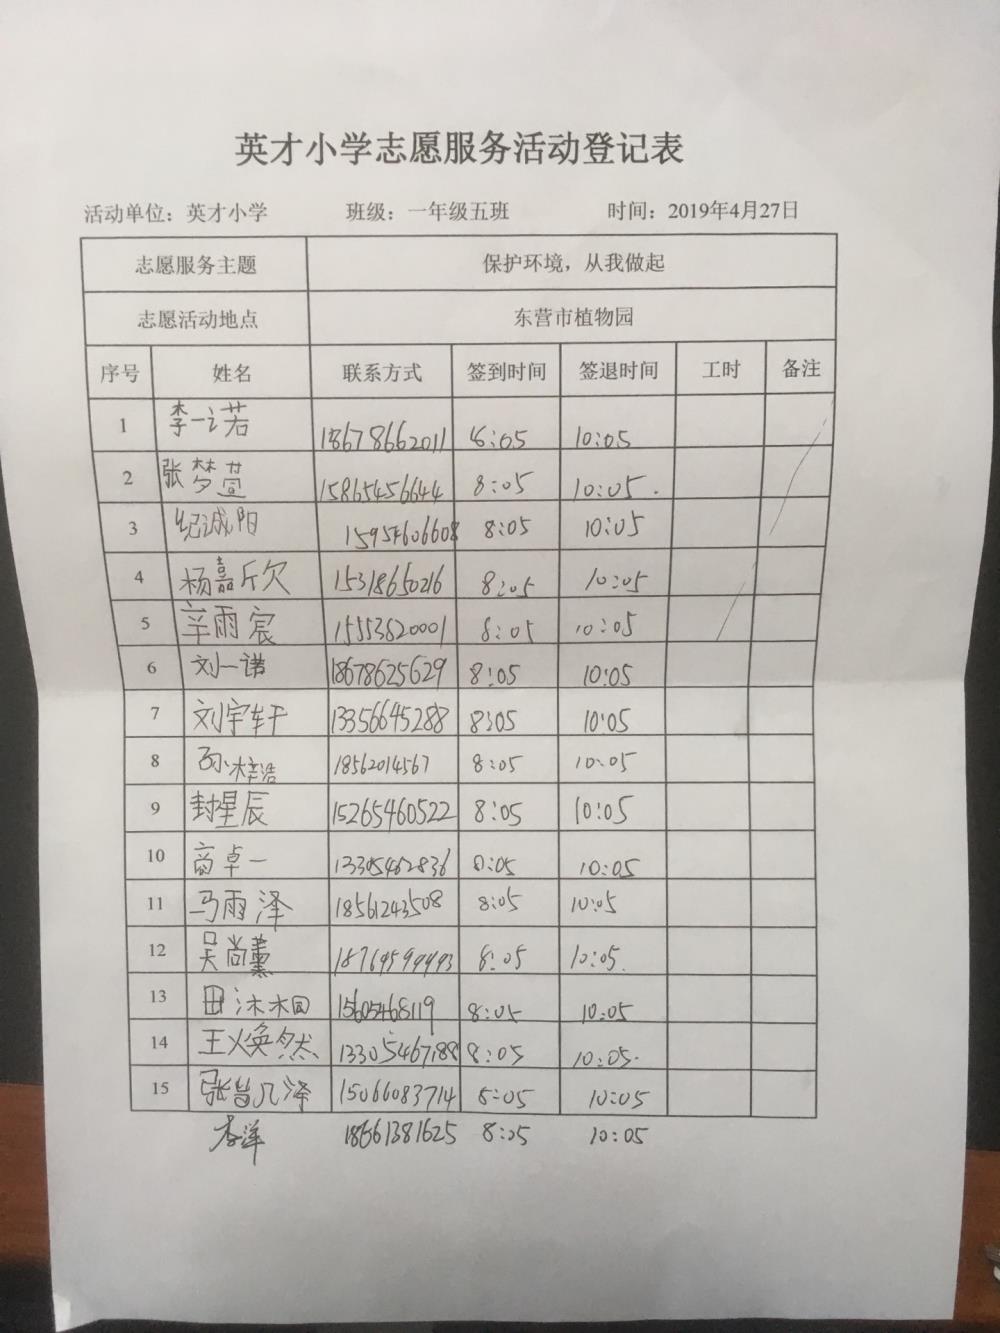 英才小学志愿服务活动登记表
活动单位：英才小学 班级：一年级五班 时间：2019年4月27日
志愿服务主题 保护环境，从我做起
志愿活动地点 东营市植物园
序号 姓名 联系方式 签到时间 签退时间 工时 备注
1 李一诺 18678662011 8:05 10:05
2 张梦萱 15865456644 8:05 10:05.
3 纪诚阳 15954606608 8:05 10:05
4 杨嘉欣 15318650216 8:05 10:05
5 辛雨宸 15553820001 8:05 10:05
6 刘一诺 18678625629 8:05 10:05
7 刘宇轩 13356645288 8:05 10:05
8 孙梓浩 18562014567 8:05 10:05
9 封星辰 15265460522 8:05 10:05
10 商卓一 13305462836 8:05 10:05
11 马雨泽 18561243508 8:05 10:05
12 吴尚薰 8:05 10:05.
13 田沐木 15605468119 8:05 10:05
14 王焕然 13305467188 8:05 10:05.
15 张 泽 15066083714 8:05 10:05
李洋 18661381625 8:05 10:05